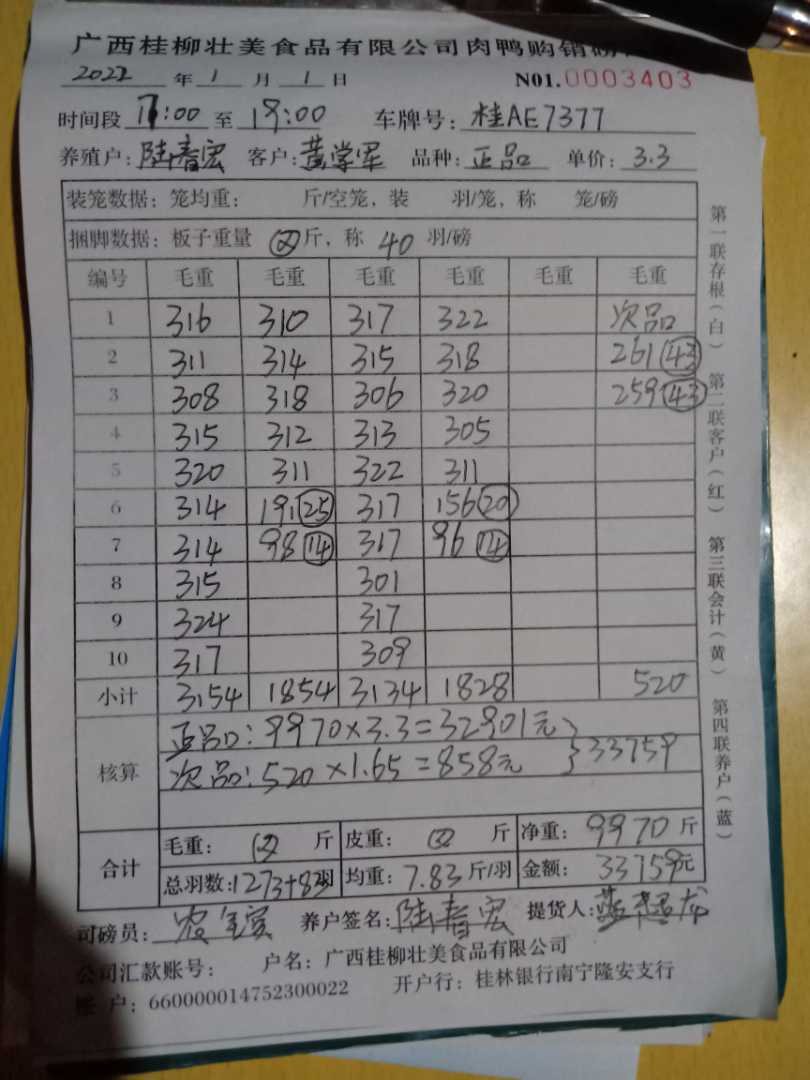 广西桂柳壮美食品有限公司肉鸭购销磅
2022 年 1 月 1 日 N01.0003403
时间段 17:00 至 19:00 车牌号: 桂AE7377
养殖户: 陆春宏 客户: 黄学军 品种: 正品 单价: 3.3
装笼数据: 笼均重: 斤/空笼, 装 羽/笼, 称 笼/磅
捆脚数据: 板子重量 斤, 称 40 羽/磅
编号 毛重 毛重 毛重 毛重 毛重 毛重
1 316 310 317 322 次品
2 311 314 315 318 261 43
3 308 318 306 320 259 43
4 315 312 313 305
5 320 311 322 311
6 314 191 25 317 156 20
7 314 98 14 317 96 14
8 315 301
9 324 317
10 317 309
小计 3154 1854 3134 1828 520
核算 正品: 9970×3.3=32901元
次品: 520×1.65=858元 }33759
合计 毛重: 斤 皮重: 斤 净重: 9970 斤
总羽数: 1273+83羽 均重: 7.83 斤/羽 金额: 33759元
司磅员: 养户签名: 陆春宏 提货人:
公司汇款账号: 户名: 广西桂柳壮美食品有限公司
账 户: 660000014752300022 开户行: 桂林银行南宁隆安支行
第一联存根(白) 第二联客户(红) 第三联会计(黄) 第四联养户(蓝)